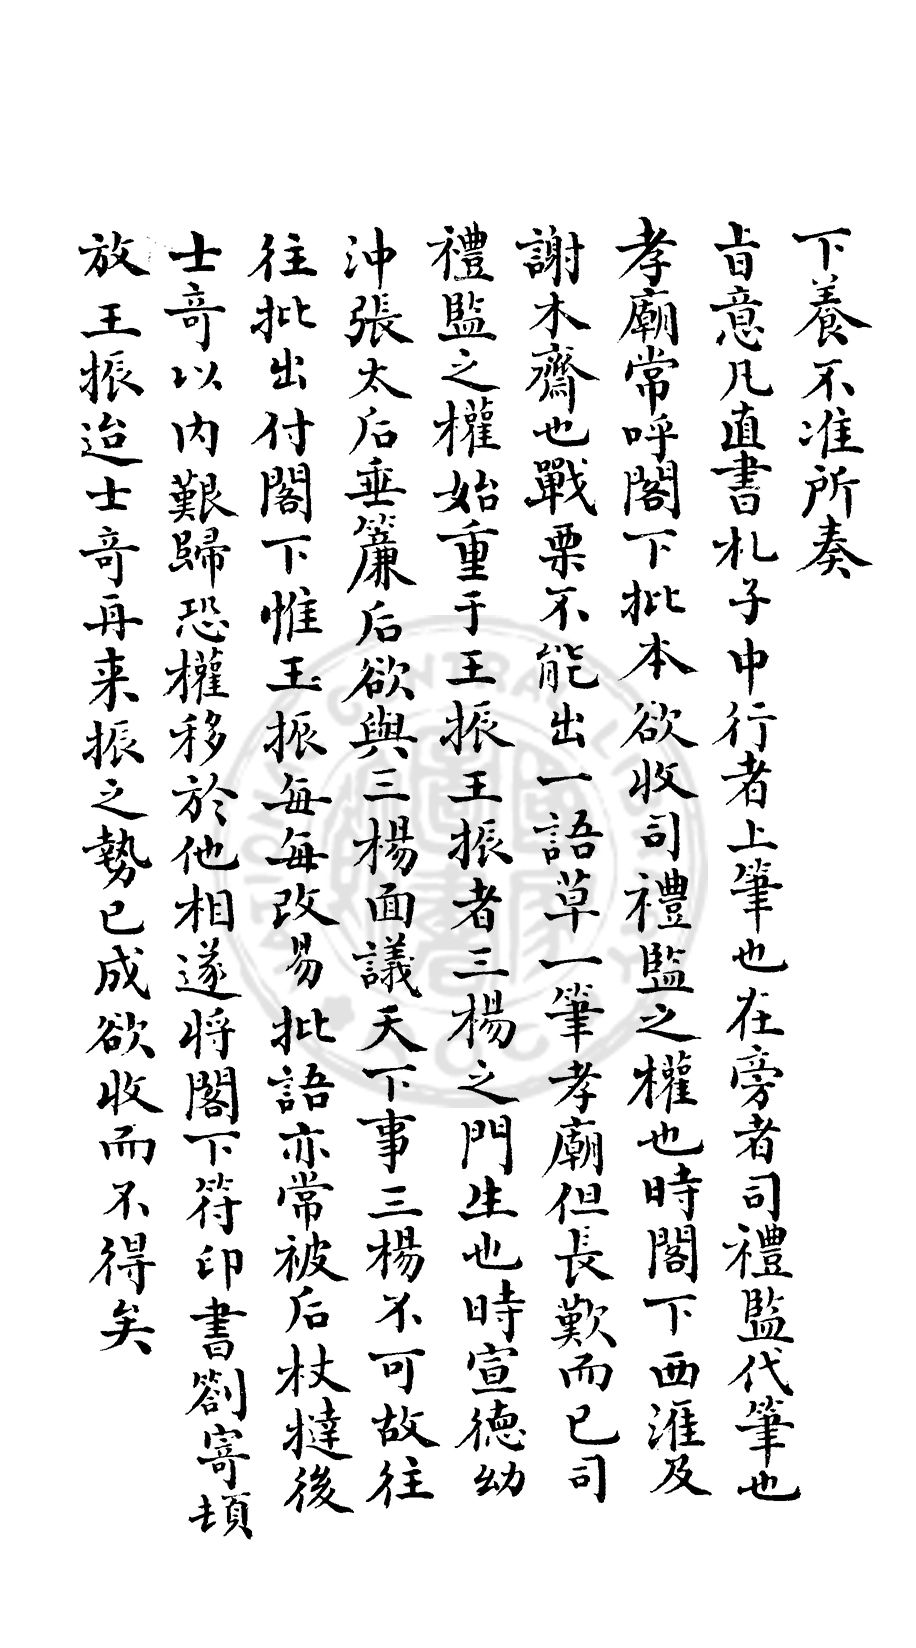 下養不准所奏
㫖意凡直書札子中行者上筆也在旁者司禮監代筆也
孝廟常呼閣下批本欲收司禮監之權也時閣下西涯及
謝木齋也戰栗不能出一語草一筆孝廟但長歎而已司
禮監之權始重于王振王振者三楊之門生也時宣德幼
沖張太后垂簾后欲與三楊面議天下事三楊不可故往
往批出付閣下惟王振每每改易批語亦常被后杖撻後
士奇以內艱歸恐權移於他相遂将閣下符印書劄寄頓
放王振迨士奇再来振之勢已成欲收而不得矣